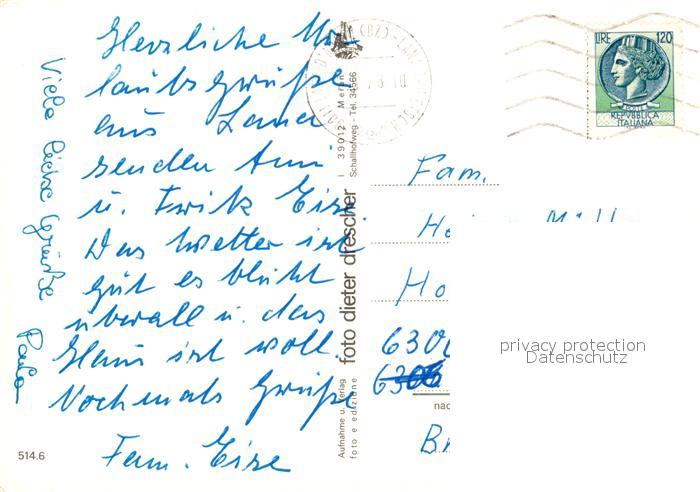 Herzliche Ur-
laubsgrüße
aus Lana
senden Anni
u. Fritz Eise.
Das Wetter ist
gut es blüht
überall u. das
Haus ist voll.
Nochmals Grüße
Fam. Eise
Viele liebe Grüße Paula
514.6
Aufnahme u. Verlag
foto e edizione
foto dieter drescher
I 39012 Meran
Schallhofweg - Tel. 34566
LIRE 120
POSTE
REPVBBLICA
ITALIANA
Fam.
He
Ho
630
6300
nac
B
privacy protection
Datenschutz